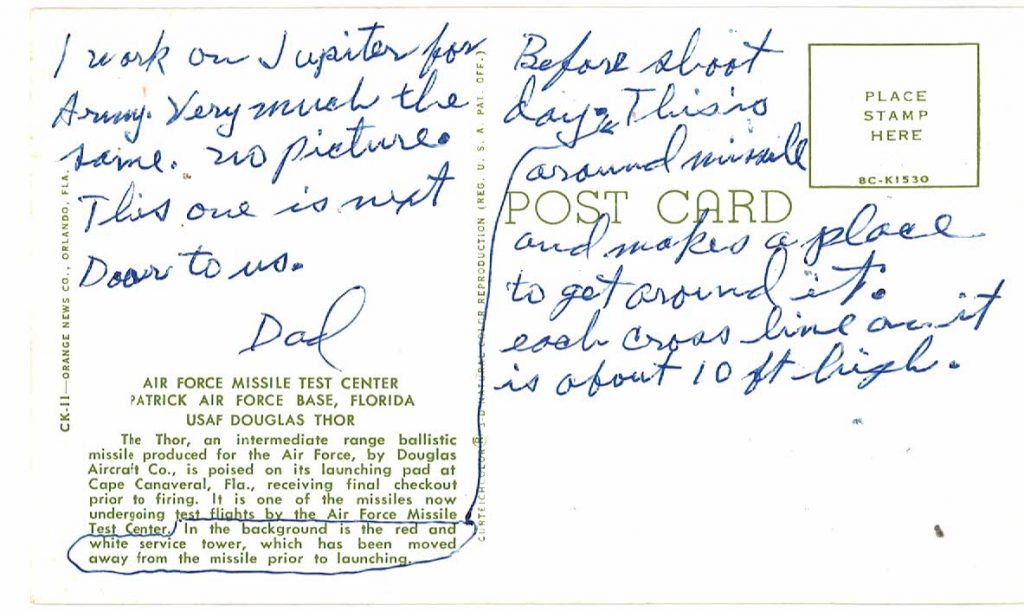 I work on Jupiter for
Army. Very much the
same. No picture.
This one is next
Door to us.
Dad
AIR FORCE MISSILE TEST CENTER
PATRICK AIR FORCE BASE, FLORIDA
USAF DOUGLAS THOR
The Thor, an intermediate range ballistic
missile produced for the Air Force, by Douglas
Aircraft Co., is poised on its launching pad at
Cape Canaveral, Fla., receiving final checkout
prior to firing. It is one of the missiles now
undergoing test flights by the Air Force Missile
Test Center. In the background is the red and
white service tower, which has been moved
away from the missile prior to launching.
CK-11—ORANGE NEWS CO., ORLANDO, FLA.
CURTEICHCOLOR® 3-D NATURAL COLOR REPRODUCTION (REG. U. S. A. PAT. OFF.)
Before shoot
day. This is
around missile
POST CARD
and makes a place
to get around it.
each cross line on it
is about 10 ft high.
PLACE
STAMP
HERE
8C-K1530